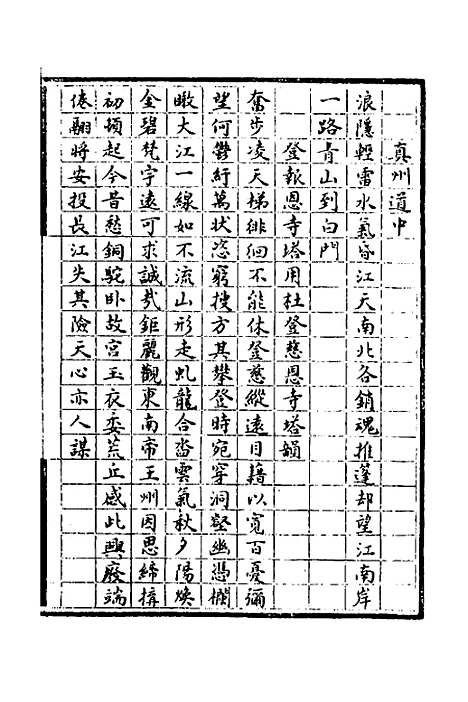 真州道中
浪隱輕雷水氣昏江天南北各銷魂推蓬却望江南岸
一路青山到白門
登報恩寺塔用杜登慈恩寺塔韻
奮步凌天梯徘徊不能休登慈縱遠目藉以寬百憂彌
望何鬱紆萬狀恣窮搜方其攀登時宛穿洞壑幽憑欄
瞰大江一線如不流山形走虬龍合沓雲氣秋夕陽煥
金碧梵宇遠可求誠哉鉅麗觀東南帝王州因思締搆
初頓起今昔愁銅駝卧故宮玉衣委荒丘感此興廢端
倦翮將安投長江失其險天心亦人謀